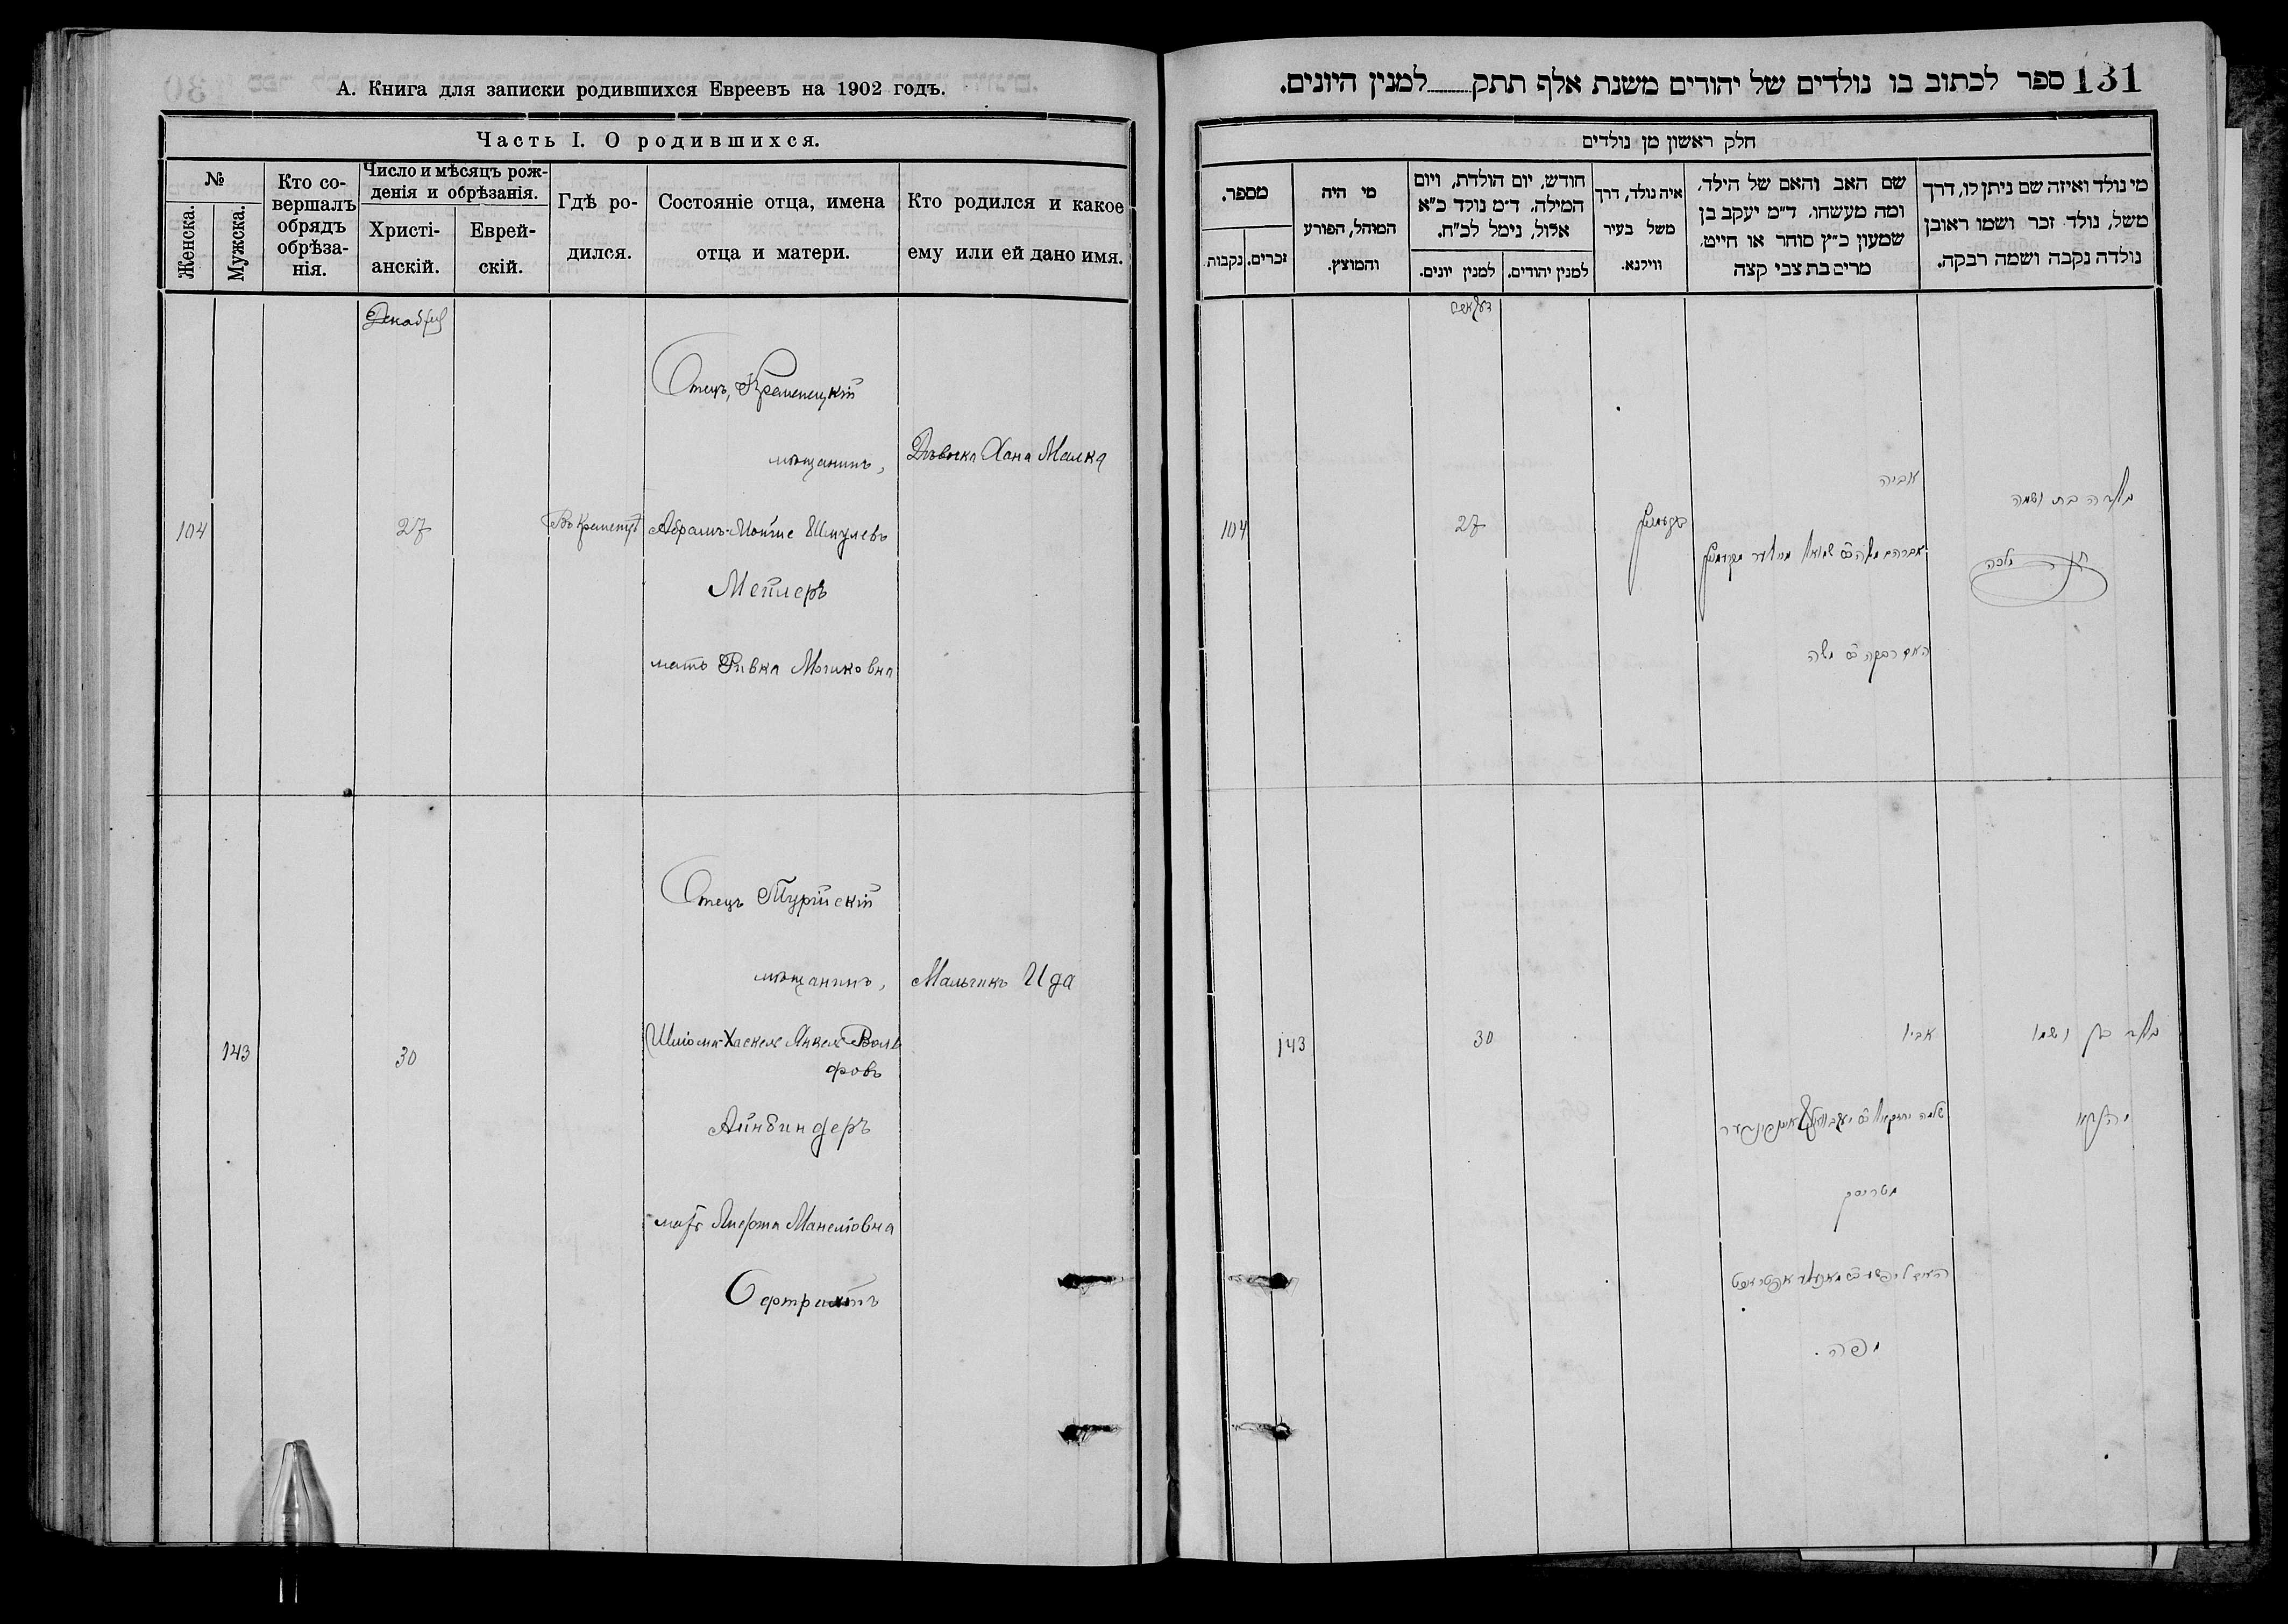 А. Книга для записки родившихся Евреевъ на 1902 годъ.
Часть I. О родившихся.
№
Женска.
Мужска.
Кто со-
вершалъ
обрядъ
обрѣза-
нія.
Число и мѣсяцъ рож-
денія и обрѣзанія.
Христі-
анскій.
Еврей-
скій.
Гдѣ ро-
дился.
Состояніе отца, имена
отца и матери.
Кто родился и какое
ему или ей дано имя.
Декабрь
Отецъ, Кременецкій
мѣщанинъ,
Дѣвочка Хана Малка
104
27
Въ Кременцѣ
Абрамъ-Мойше Шмулевъ
Мейлеръ
мать Ривка
Отецъ Турійскій
мѣщанинъ,
Мальчикъ Ида
143
30
Шліома-Хаскель Янкель Воль
фовъ
Айнбиндеръ
мать
131
ספר לכתוב בו נולדים של יהודים משנת אלף תתק למנין היונים.
חלק ראשון מן נולדים
מי נולד ואיזה שם ניתן לו, דרך
משל, נולד זכר ושמו ראובן
נולדה נקבה ושמה רבקה.
שם האב והאם של הילד,
ומה מעשהו, ד"מ יעקב בן
שמעון כ"ץ סוחר או חייט,
מרים בת צבי קצה
איה נולד, דרך
משל בעיר
ווילנא.
חודש, יום הולדת, ויום
המילה, ד"מ נולד כ"א
אלול, נימל לכ"ח.
למנין יהודים.
למנין יונים.
מי היה
המוהל, הפורע
והמוצץ.
מספר.
זכרים.
נקבות.
אביה
בת ושמה
104
27
אברהם משה
חנה מלכה
האם רבקה
משה
143
30
אביו
בן ושמו
שלמה יחזקאל
האם
יפה.